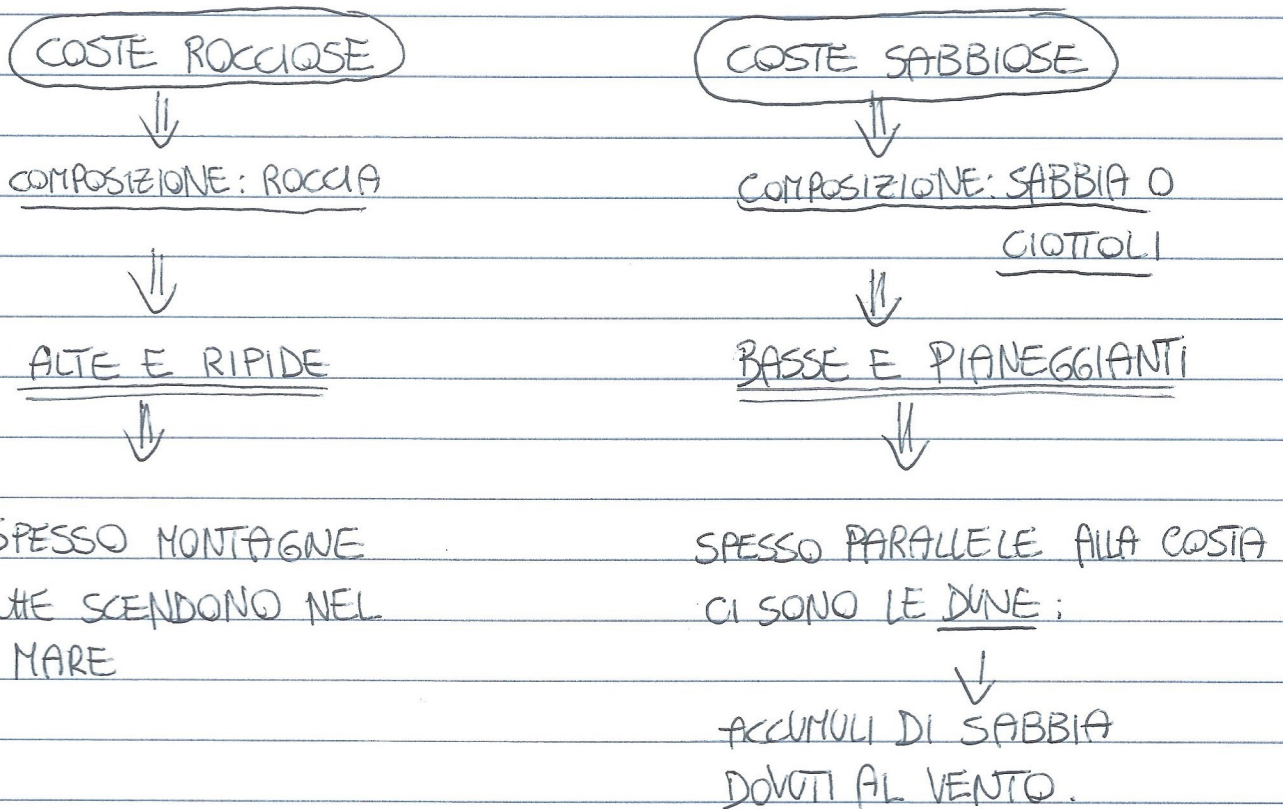 COSTE ROCCIOSE
COMPOSIZIONE: ROCCIA
ALTE E RIPIDE
SPESSO MONTAGNE
CHE SCENDONO NEL
MARE
COSTE SABBIOSE
COMPOSIZIONE: SABBIA O
CIOTTOLI
BASSE E PIANEGGIANTI
SPESSO PARALLELE ALLA COSTA
CI SONO LE DUNE:
ACCUMULI DI SABBIA
DOVUTI AL VENTO.